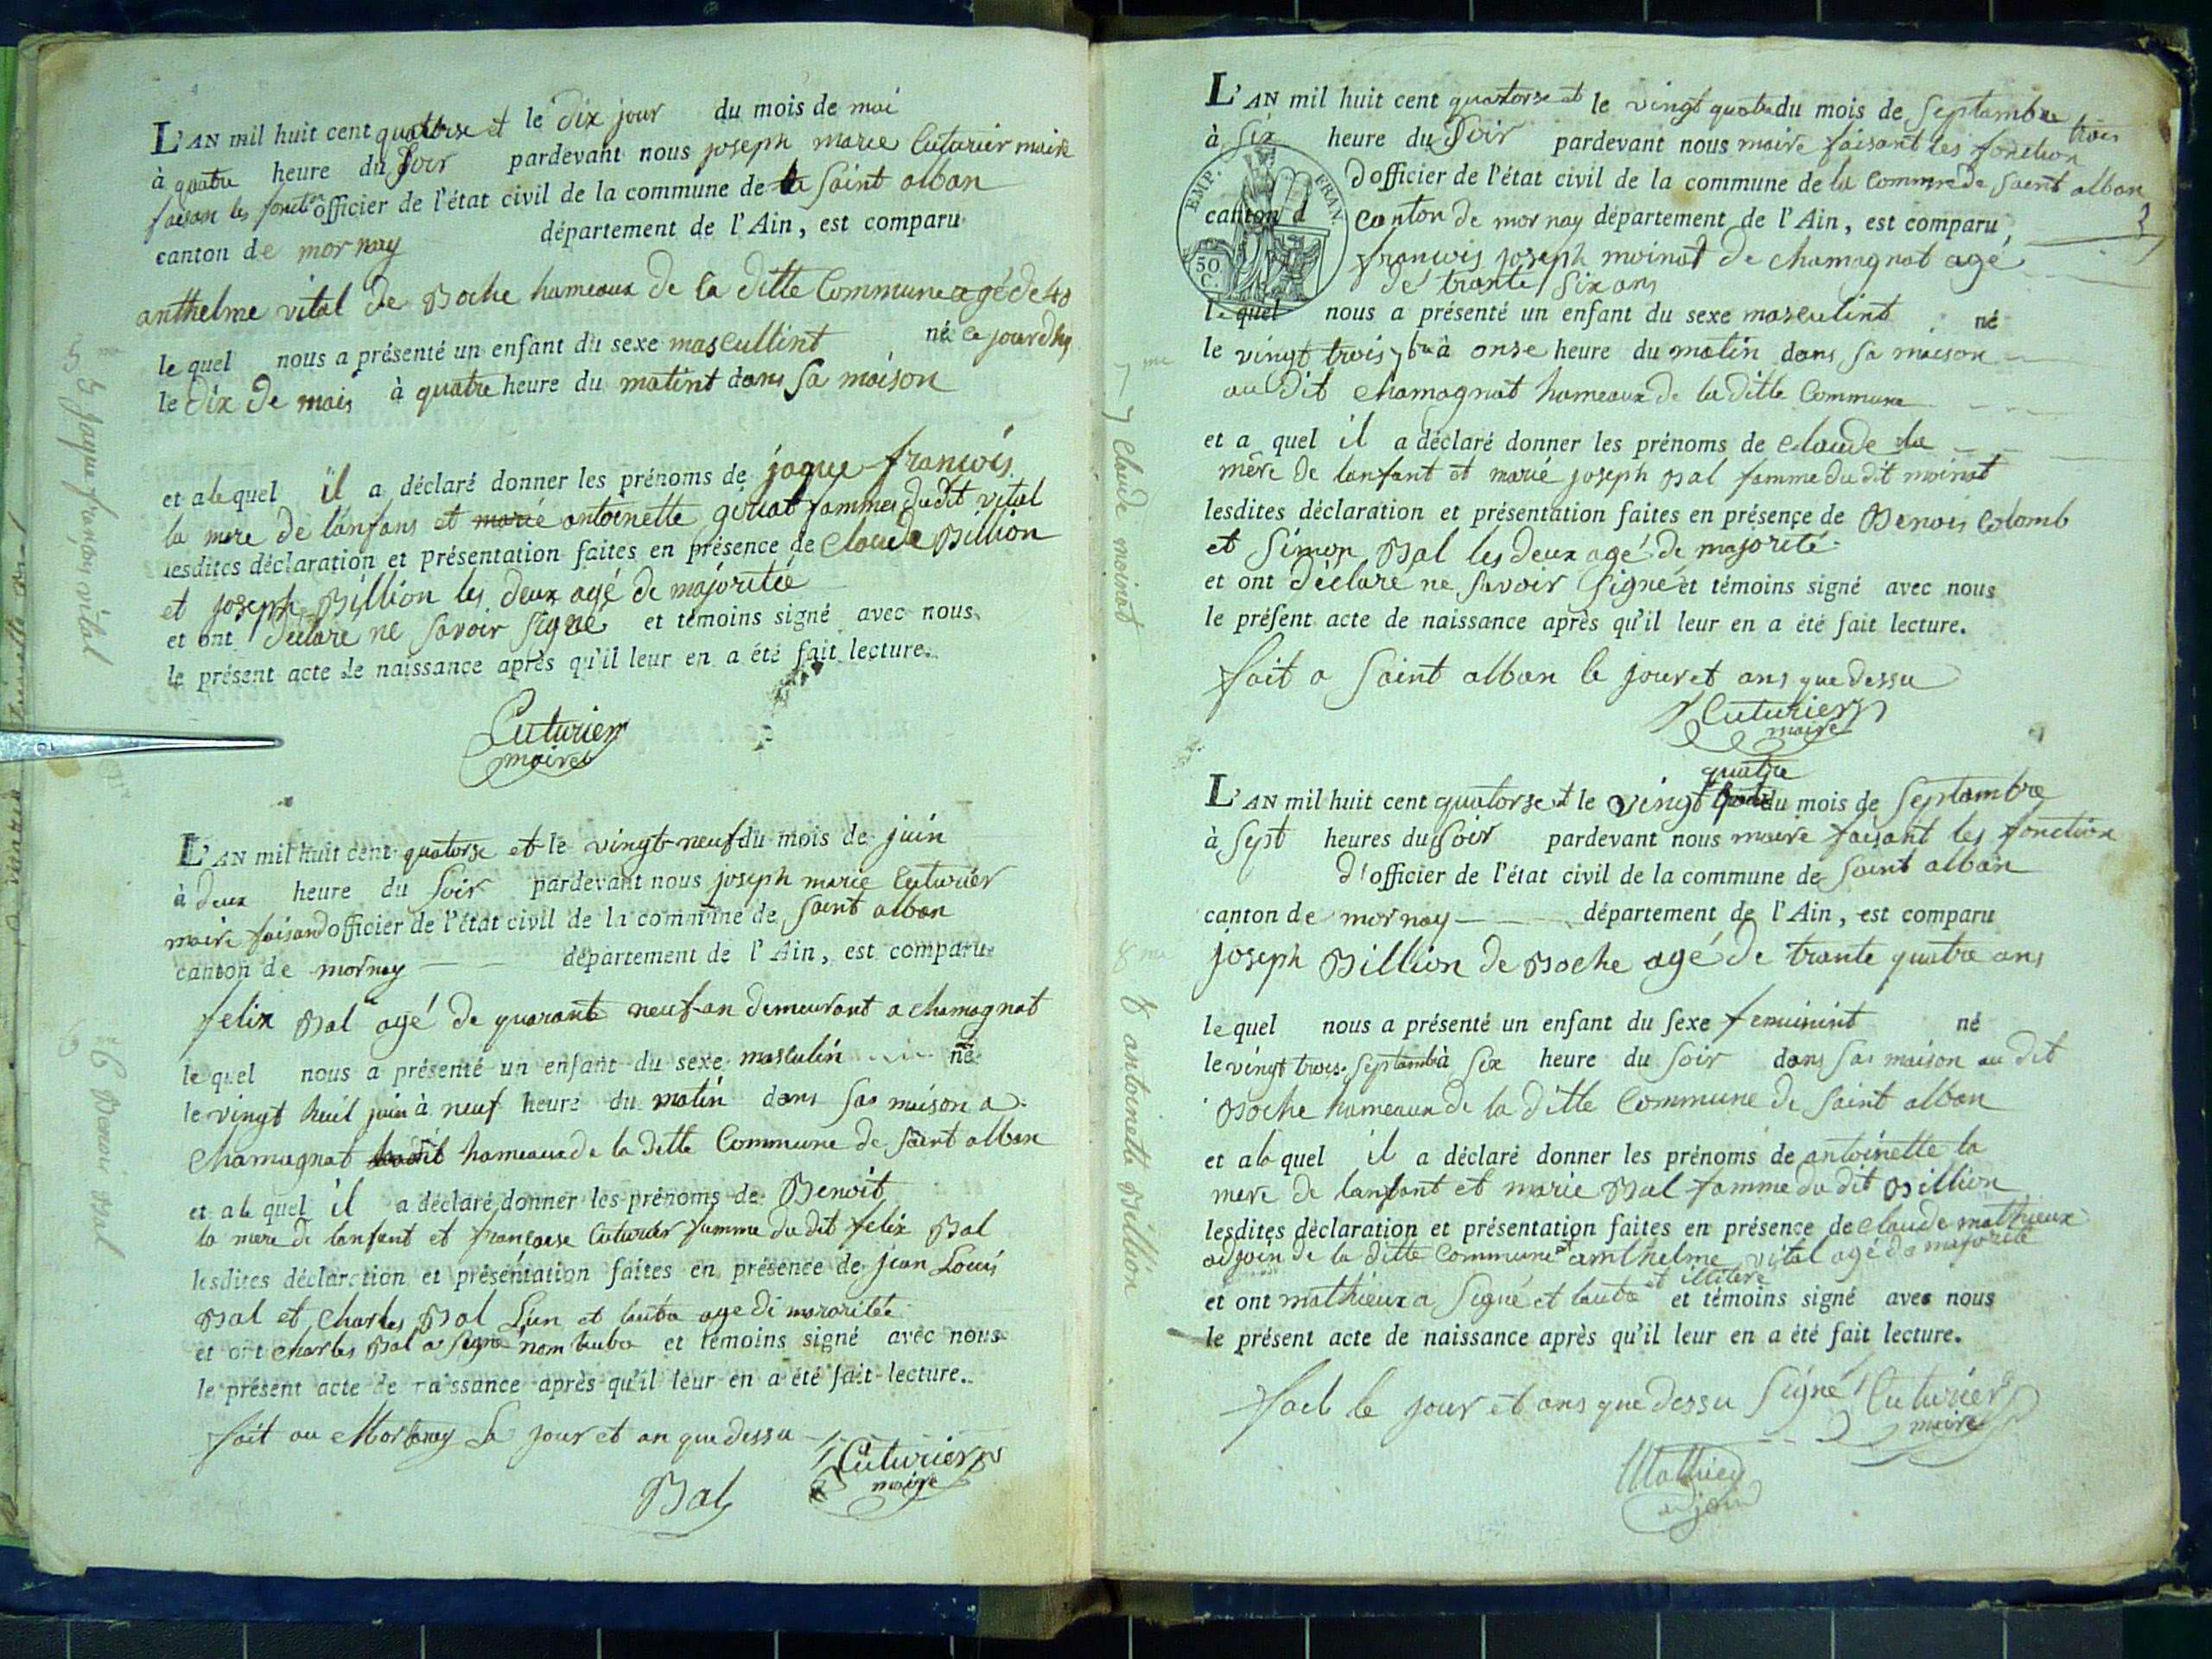 L'AN mil huit cent quatorse et le dix jour du mois de mai
à quatre heure du soir pardevant nous joseph marie Cuturier maire
faisan les fonction officier de l'état civil de la commune de saint alban
canton de mornay département de l'Ain, est comparu
anthelme vital de Boche hameaux de la ditte Commune agé de 40
le quel nous a présenté un enfant du sexe mascullint né ce jourdhy
le dix de mais à quatre heure du matint dans sa maison
et a le quel il a déclaré donner les prénoms de jaque francois
la mere de lanfans et marie antoinette goiiat fammes dudit vital
lesdites déclaration et présentation faites en présence de Claude Billion
et joseph Billion les deux agé de majoritée
et ont déclare ne savoir signe et témoins signé avec nous
le présent acte de naissance après qu'il leur en a été fait lecture.
Cuturier
maire
5 jaque françois vital
L'AN mil huit cent quatorse et le vingt-neuf du mois de juin
à deux heure du soir pardevant nous joseph marie Cuturier
maire faisand officier de l'état civil de la commune de saint alban
canton de mornay département de l'Ain, est comparu
felix Bal agé de quarante neuf an demeurant a chamagnat
le quel nous a présenté un enfant du sexe masculin né
le vingt huit juin à neuf heure du matin dans sas maison a
Chamagnat hameaux de la ditte Commune de saint alban
et a le quel il a déclaré donner les prénoms de Benoit
la mere de lanfent et francoise Cuturier famme du dit felix Bal
lesdites déclaration et présentation faites en présence de jean Louis
Bal et Charles Bal Lun et lautre age de majoritée
et ont charles Bal a signé nom lautre et témoins signé avec nous
le présent acte de naissance après qu'il leur en a été fait lecture.
fait au Mortaray Le jour et an que dessu
Cuturier
maire
Bal
6 Benoit Bal
L'AN mil huit cent quatorse et le vingt quatre du mois de Septambre
trois
à six heure du soir pardevant nous maire faisant les fonction
d'officier de l'état civil de la commune de la Commune de saint alban
canton d canton de mornay département de l'Ain, est comparu
francois joseph moinat de chamagnat agé
de trante six ans
EMP. FRAN.
50 C.
le quel nous a présenté un enfant du sexe masculint né
le vingt trois 7bre à onse heure du matin dans sa maison
au dit chamagnat hameaux de la ditte Commune
et a quel il a déclaré donner les prénoms de claude la
mère de lanfant et marie joseph Bal famme du dit moinat
lesdites déclaration et présentation faites en présence de Benois Colomb
et Simon Bal les deux agé de majorité
et ont déclaré ne savoir signé et témoins signé avec nous
le présent acte de naissance après qu'il leur en a été fait lecture.
fait a saint alban le jour et ans que dessu
Cuturier
maire
7me
7 Claude moinat
quatre
L'AN mil huit cent quatorse et le vingt du mois de Septambre
à sept heures du soir pardevant nous maire faisant les fonction
d'officier de l'état civil de la commune de saint alban
canton de mornay département de l'Ain, est comparu
joseph Billion de Boche agé de trante quatre ans
le quel nous a présenté un enfant du sexe feminint né
le vingt trois septamb à six heure du soir dans sas maison au dit
Boche hameaux de la ditte Commune de saint alban
et a la quel il a déclaré donner les prénoms de antoinette la
mere de lanfant et marie Bal famme du dit Billion
lesdites déclaration et présentation faites en présence de claude mathieux
adjoin de la ditte Commune et anthelme vital agé de majorité
et ont mathieux a signé et lautre et illitéré et témoins signé avec nous
le présent acte de naissance après qu'il leur en a été fait lecture.
fact le jour et ans que dessu signé Cuturier
maire
Mathieu
adjoin
8me
8 antoinette Billion